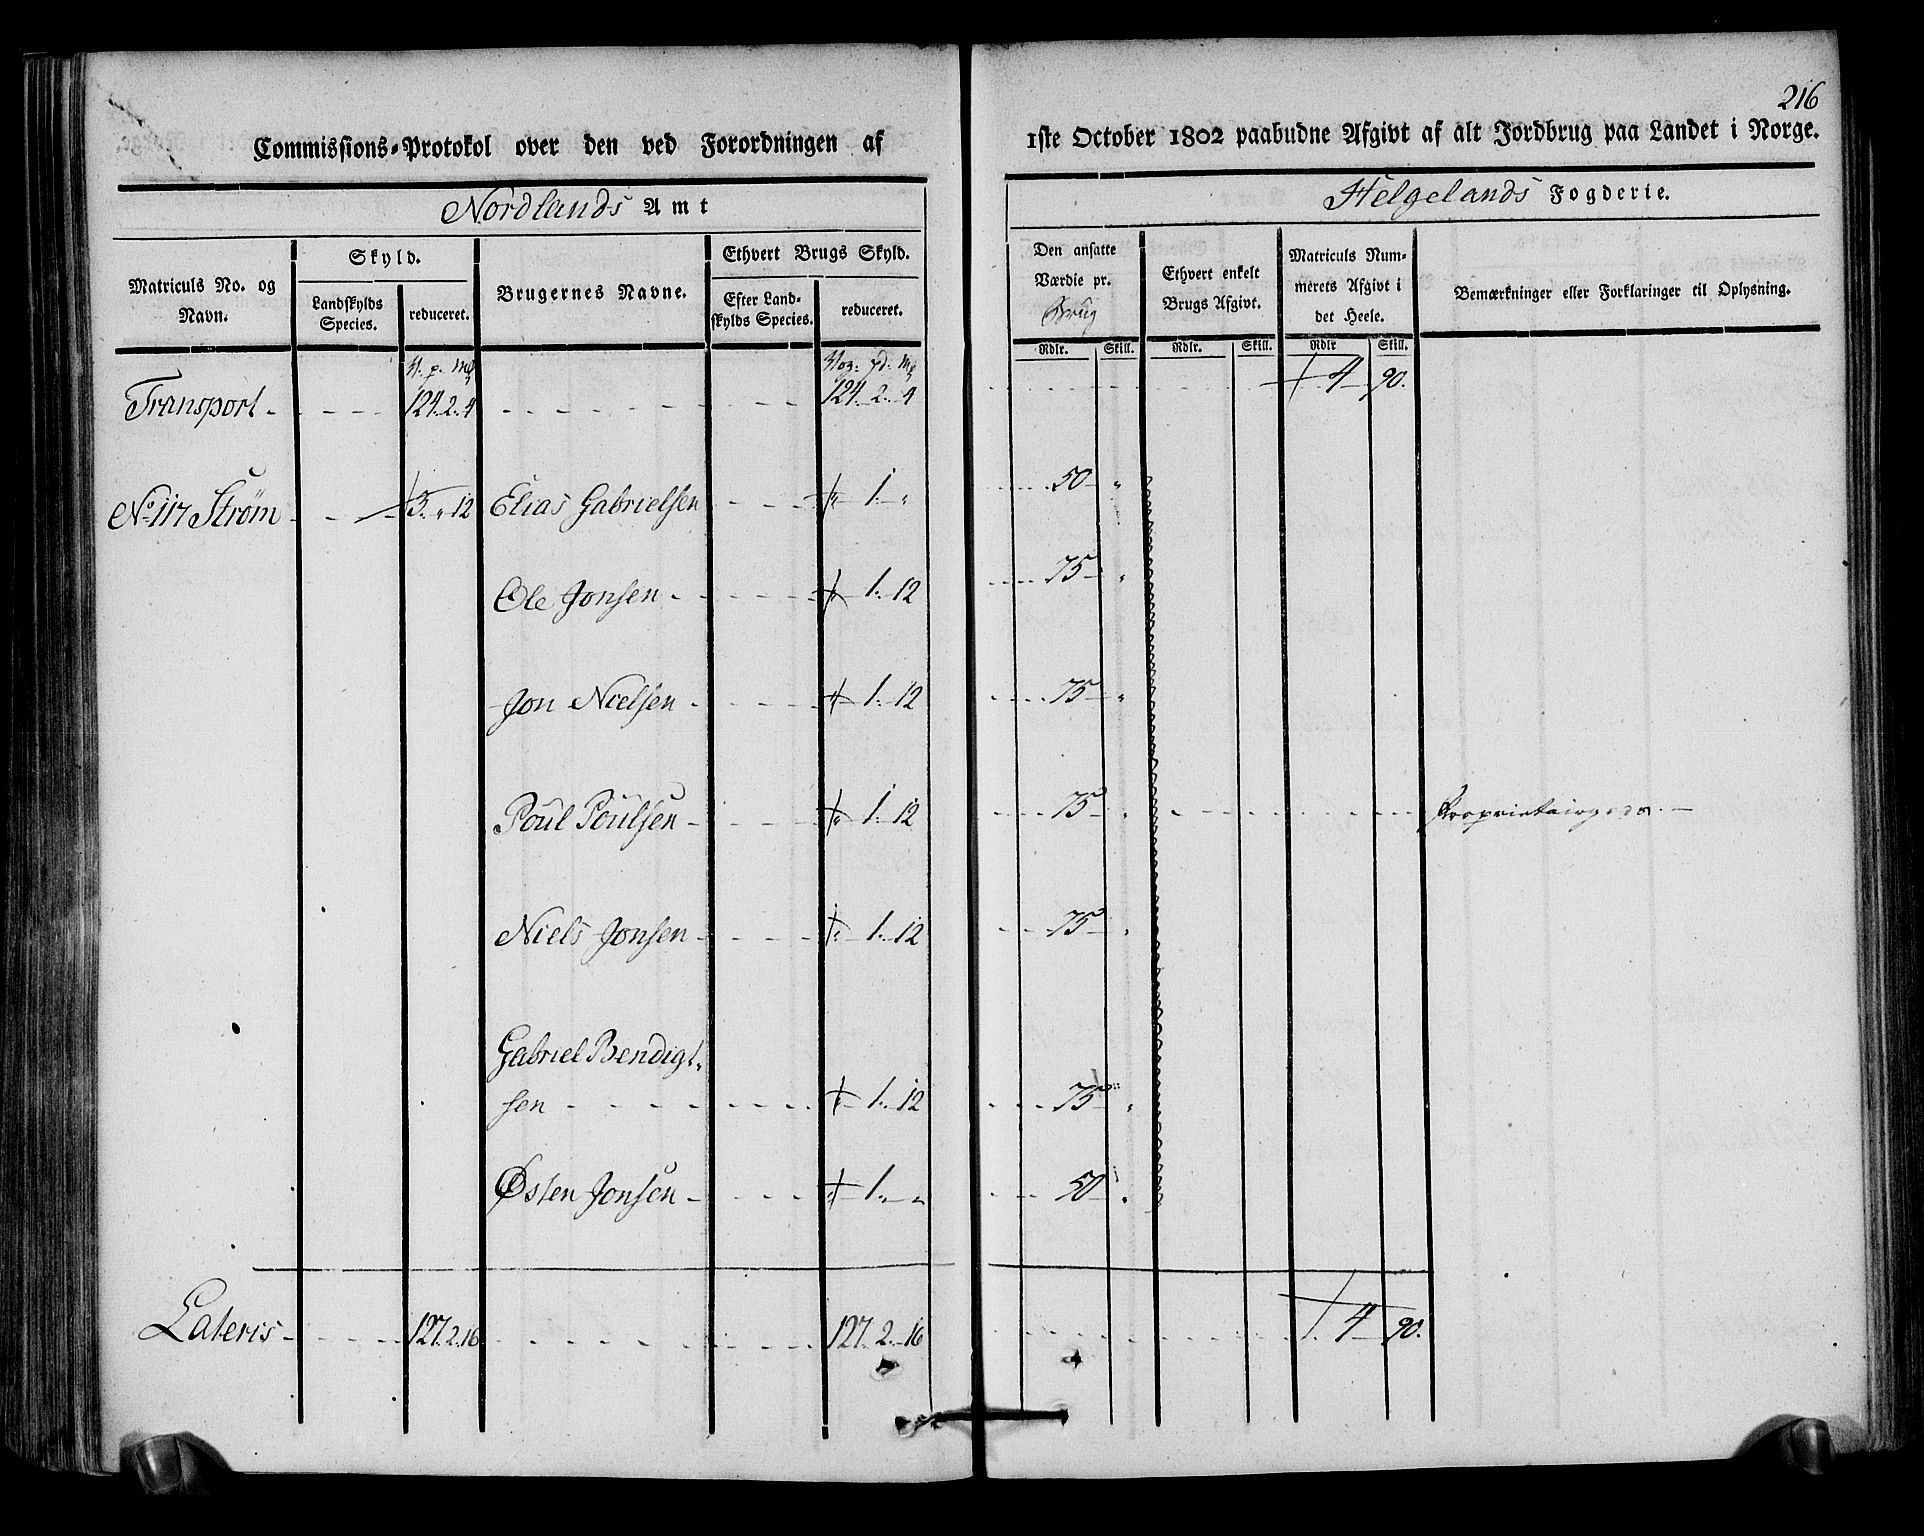 216
Commissions-Protokol over den ved Forordningen af 1ste October 1802 paabudne Afgivt af alt Jordbrug paa Landet i Norge.
Nordlands Amt
Helgelands Fogderie.
Matriculs No. og Navn.
Skyld.
Landskylds Species.
reduceret.
Brugernes Navne.
Ethvert Brugs Skyld.
Efter Landskylds Species.
reduceret.
Den ansatte Værdie pr. Brug
Ethvert enkelt Brugs Afgivt.
Matriculs Nummerets Afgivt i det Heele.
Bemærkninger eller Forklaringer til Oplysning.
Rdlr. Skill. Rdlr. Skill. Rdlr Skill.
Transport 124. 2. 4 124. 2. 4 4 90.
No. 117 Strøm 3. " 12 Elias Gabrielsen " 1. " 50 "
Ole Jonsen " 1. 12 75 "
Jon Nielsen " 1. 12 75 "
Poul Poulsen " 1. 12 75 "
Niels Jonsen " 1. 12 75 "
Gabriel Bendigt-
sen " 1. 12 75 "
Østen Jonsen " 1. " 50 "
Lateris 127. 2. 16 127. 2. 16 4 90.